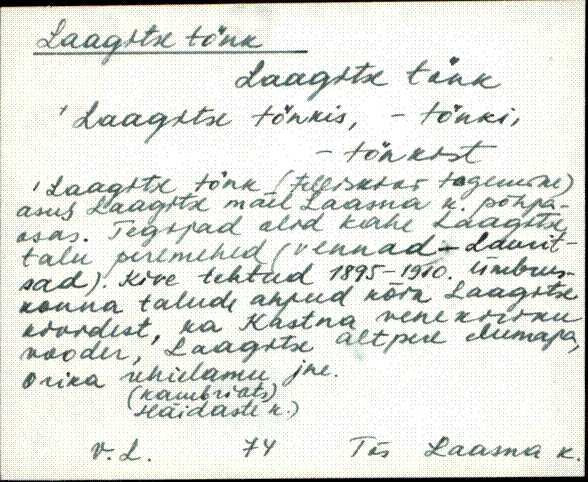 Laagitse tönk
Laagitse tönk
'Laagitse tönkis, - tönki,
- tönkist
'Laagitse tönk (telliskivi tegemine)
asus Laagitse mäel Laasma k. põhja-
osas. Tegijad olid kahe Laagitse
talu peremehed (vennad - Laurit-
sad). Kive tehtud 1895-1910. Ümbrus-
konna talude ahjud kõik Laagitse
kividest, ka Kastna vene kiriku
vooder, Laagitse altpere elumaja,
orika jne.
(kambrid)
Häidaste k.)
V. L. 74 Tõs Laasma k.